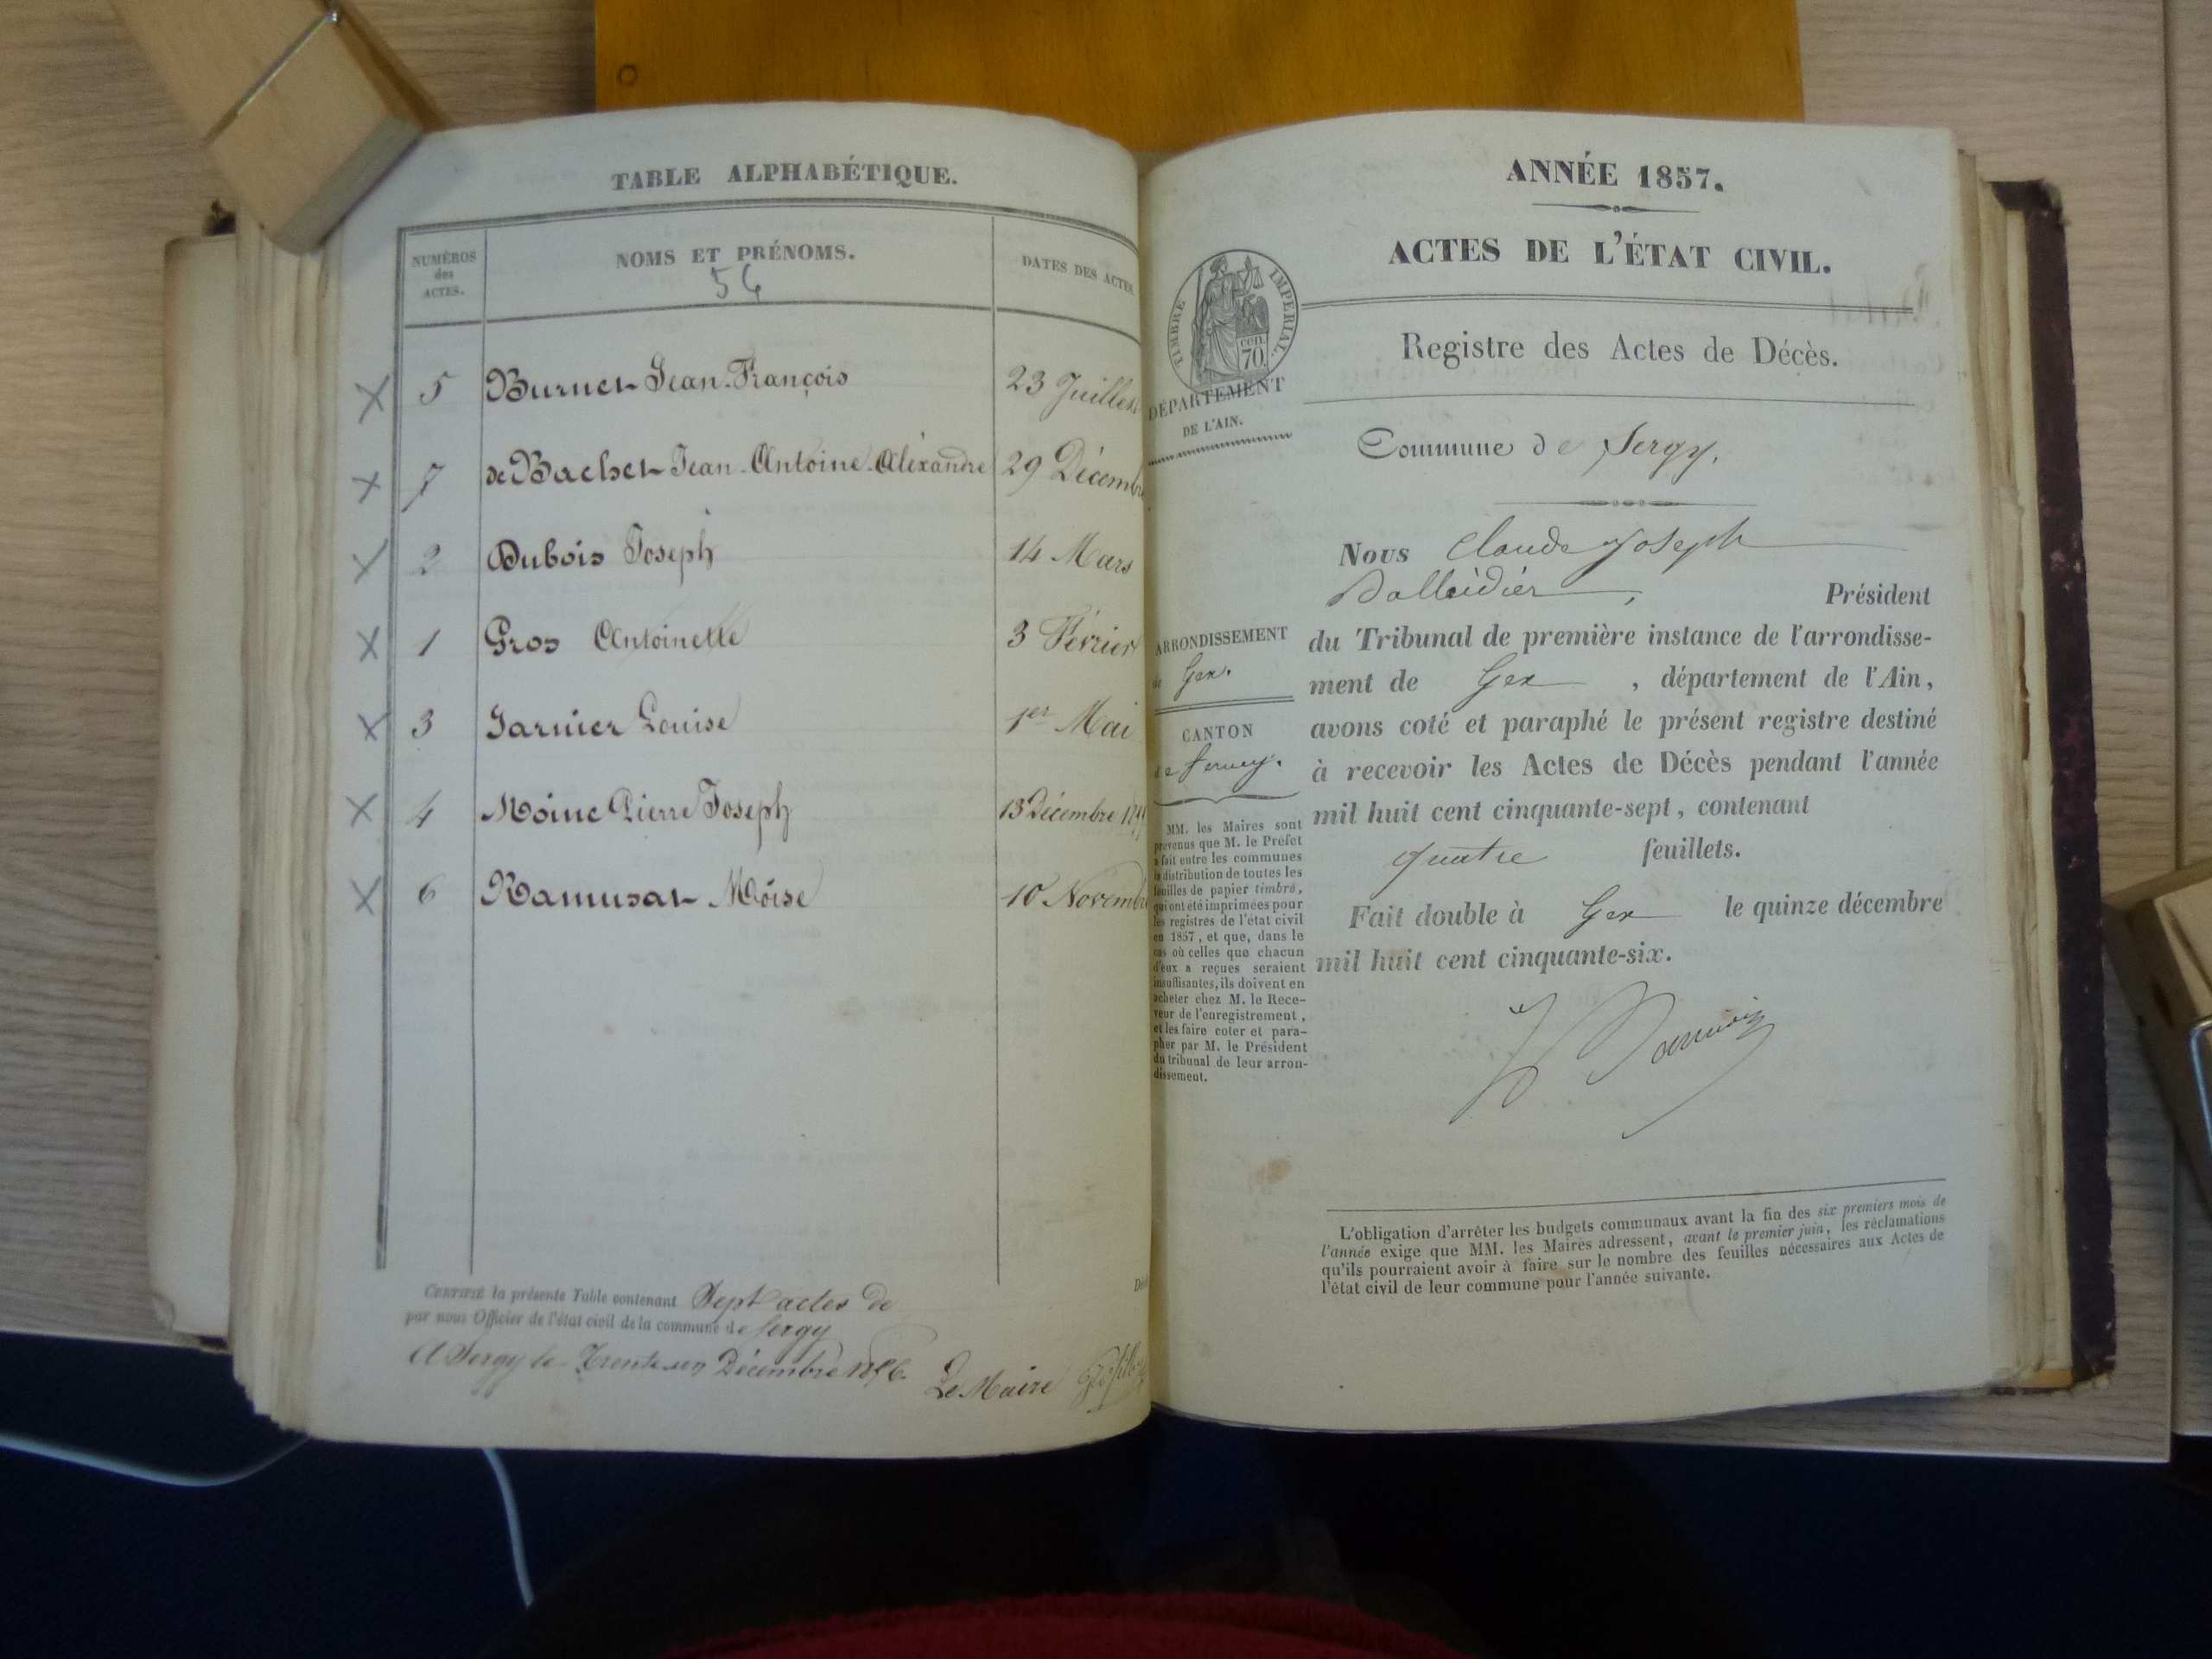 TABLE ALPHABÉTIQUE.
NUMÉROS des ACTES.
NOMS ET PRÉNOMS.
DATES DES ACTES
56
5 Burnet Jean-François 23 Juillet
7 de Bachet Jean-Antoine-Aléxandre 29 Décembre
2 Dubois Joseph 14 Mars
1 Gros Antoinette 3 Février
3 Jarnier Louise 1er Mai
4 Moine Pierre Joseph 13 Décembre
6 Ramusat Moïse 10 Novembre
CERTIFIÉ la présente Table contenant Sept actes de
par nous Officier de l'état civil de la commune de Sergy
A Sergy le Trente un Décembre 1856
Le Maire
ANNÉE 1857.
ACTES DE L'ÉTAT CIVIL.
TIMBRE IMPERIAL
cen. 70.
DÉPARTEMENT
DE L'AIN.
Registre des Actes de Décès.
Commune de Sergy.
ARRONDISSEMENT
de Gex.
CANTON
de Ferney.
MM. les Maires sont
prevenus que M. le Préfet
a fait entre les communes
la distribution de toutes les
feuilles de papier timbré,
qui ont été imprimées pour
les registres de l'état civil
en 1857, et que, dans le
cas où celles que chacun
d'eux a reçues seraient
insuffisantes, ils doivent en
acheter chez M. le Rece-
veur de l'enregistrement,
et les faire coter et para-
pher par M. le Président
du tribunal de leur arron-
dissement.
Nous Claude Joseph
Président
du Tribunal de première instance de l'arrondisse-
ment de Gex, département de l'Ain,
avons coté et paraphé le présent registre destiné
à recevoir les Actes de Décès pendant l'année
mil huit cent cinquante-sept, contenant
quatre feuillets.
Fait double à Gex le quinze décembre
mil huit cent cinquante-six.
L'obligation d'arrêter les budgets communaux avant la fin des six premiers mois de
l'année exige que MM. les Maires adressent, avant le premier juin, les réclamations
qu'ils pourraient avoir à faire sur le nombre des feuilles nécessaires aux Actes de
l'état civil de leur commune pour l'année suivante.